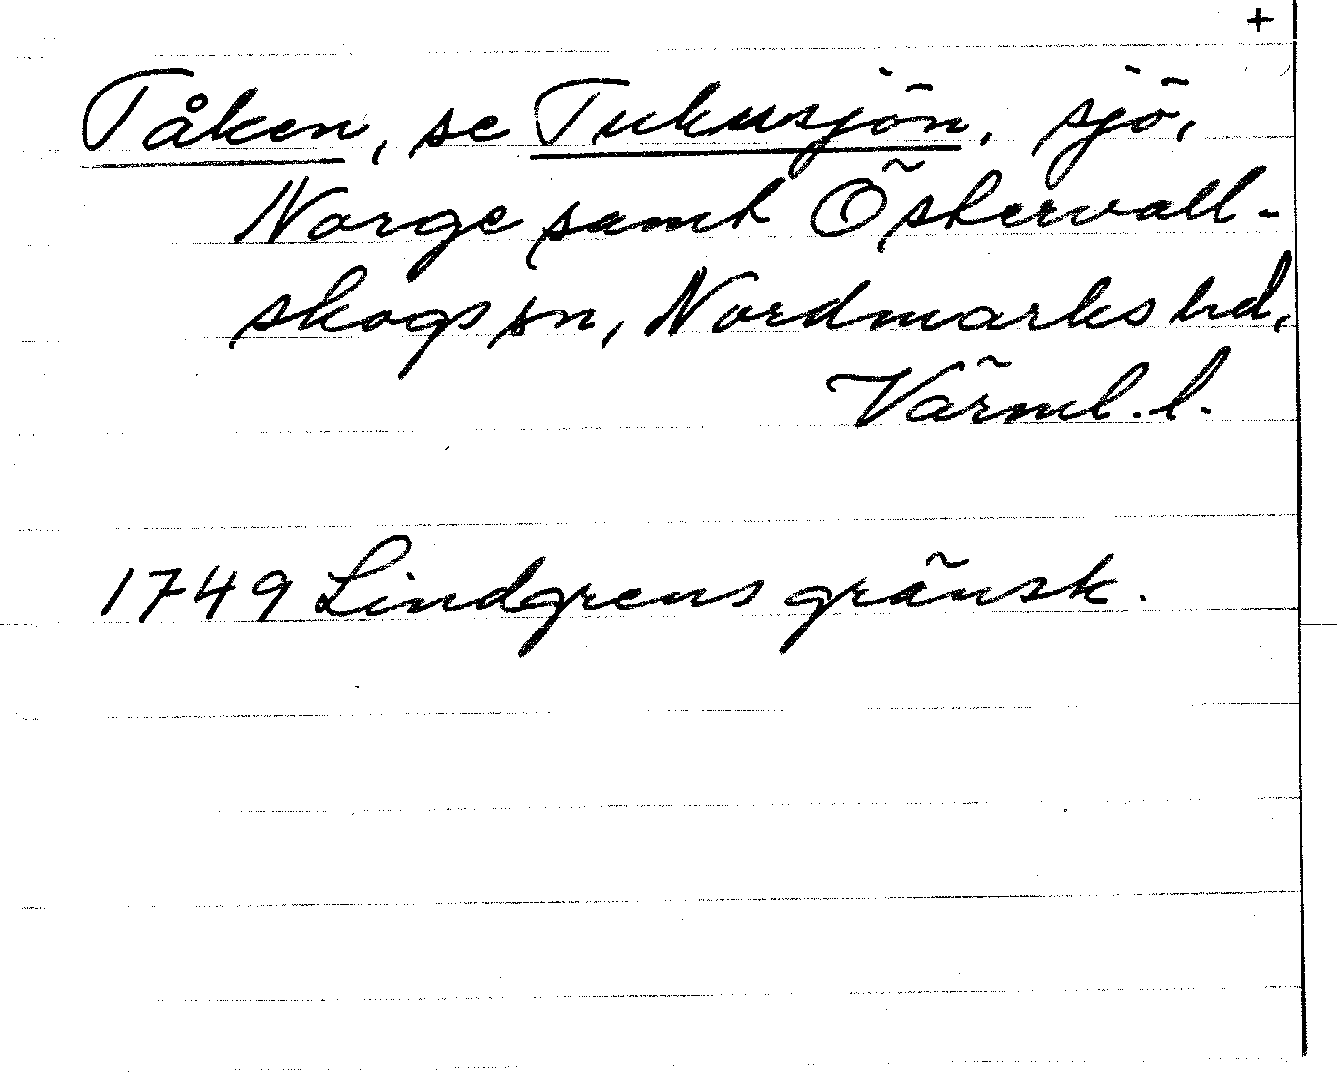 +
Tåken, se Tukusjön, sjö,
Norge samt Östervall-
skogs sn, Nordmarks hd,
Värml. l.
1749 Lindgrens gränsk.